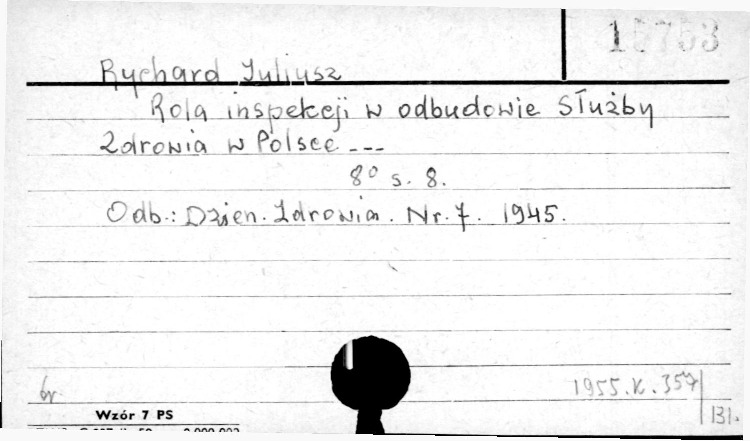 15753
Rychard Juliusz
Rola inspekcji w odbudowie Służby
Zdrowia w Polsce ---
8° s. 8.
Odb.: Dzien. Zdrowia. Nr. 7. 1945.
1955.K.357
br.
131.
Wzór 7 PS